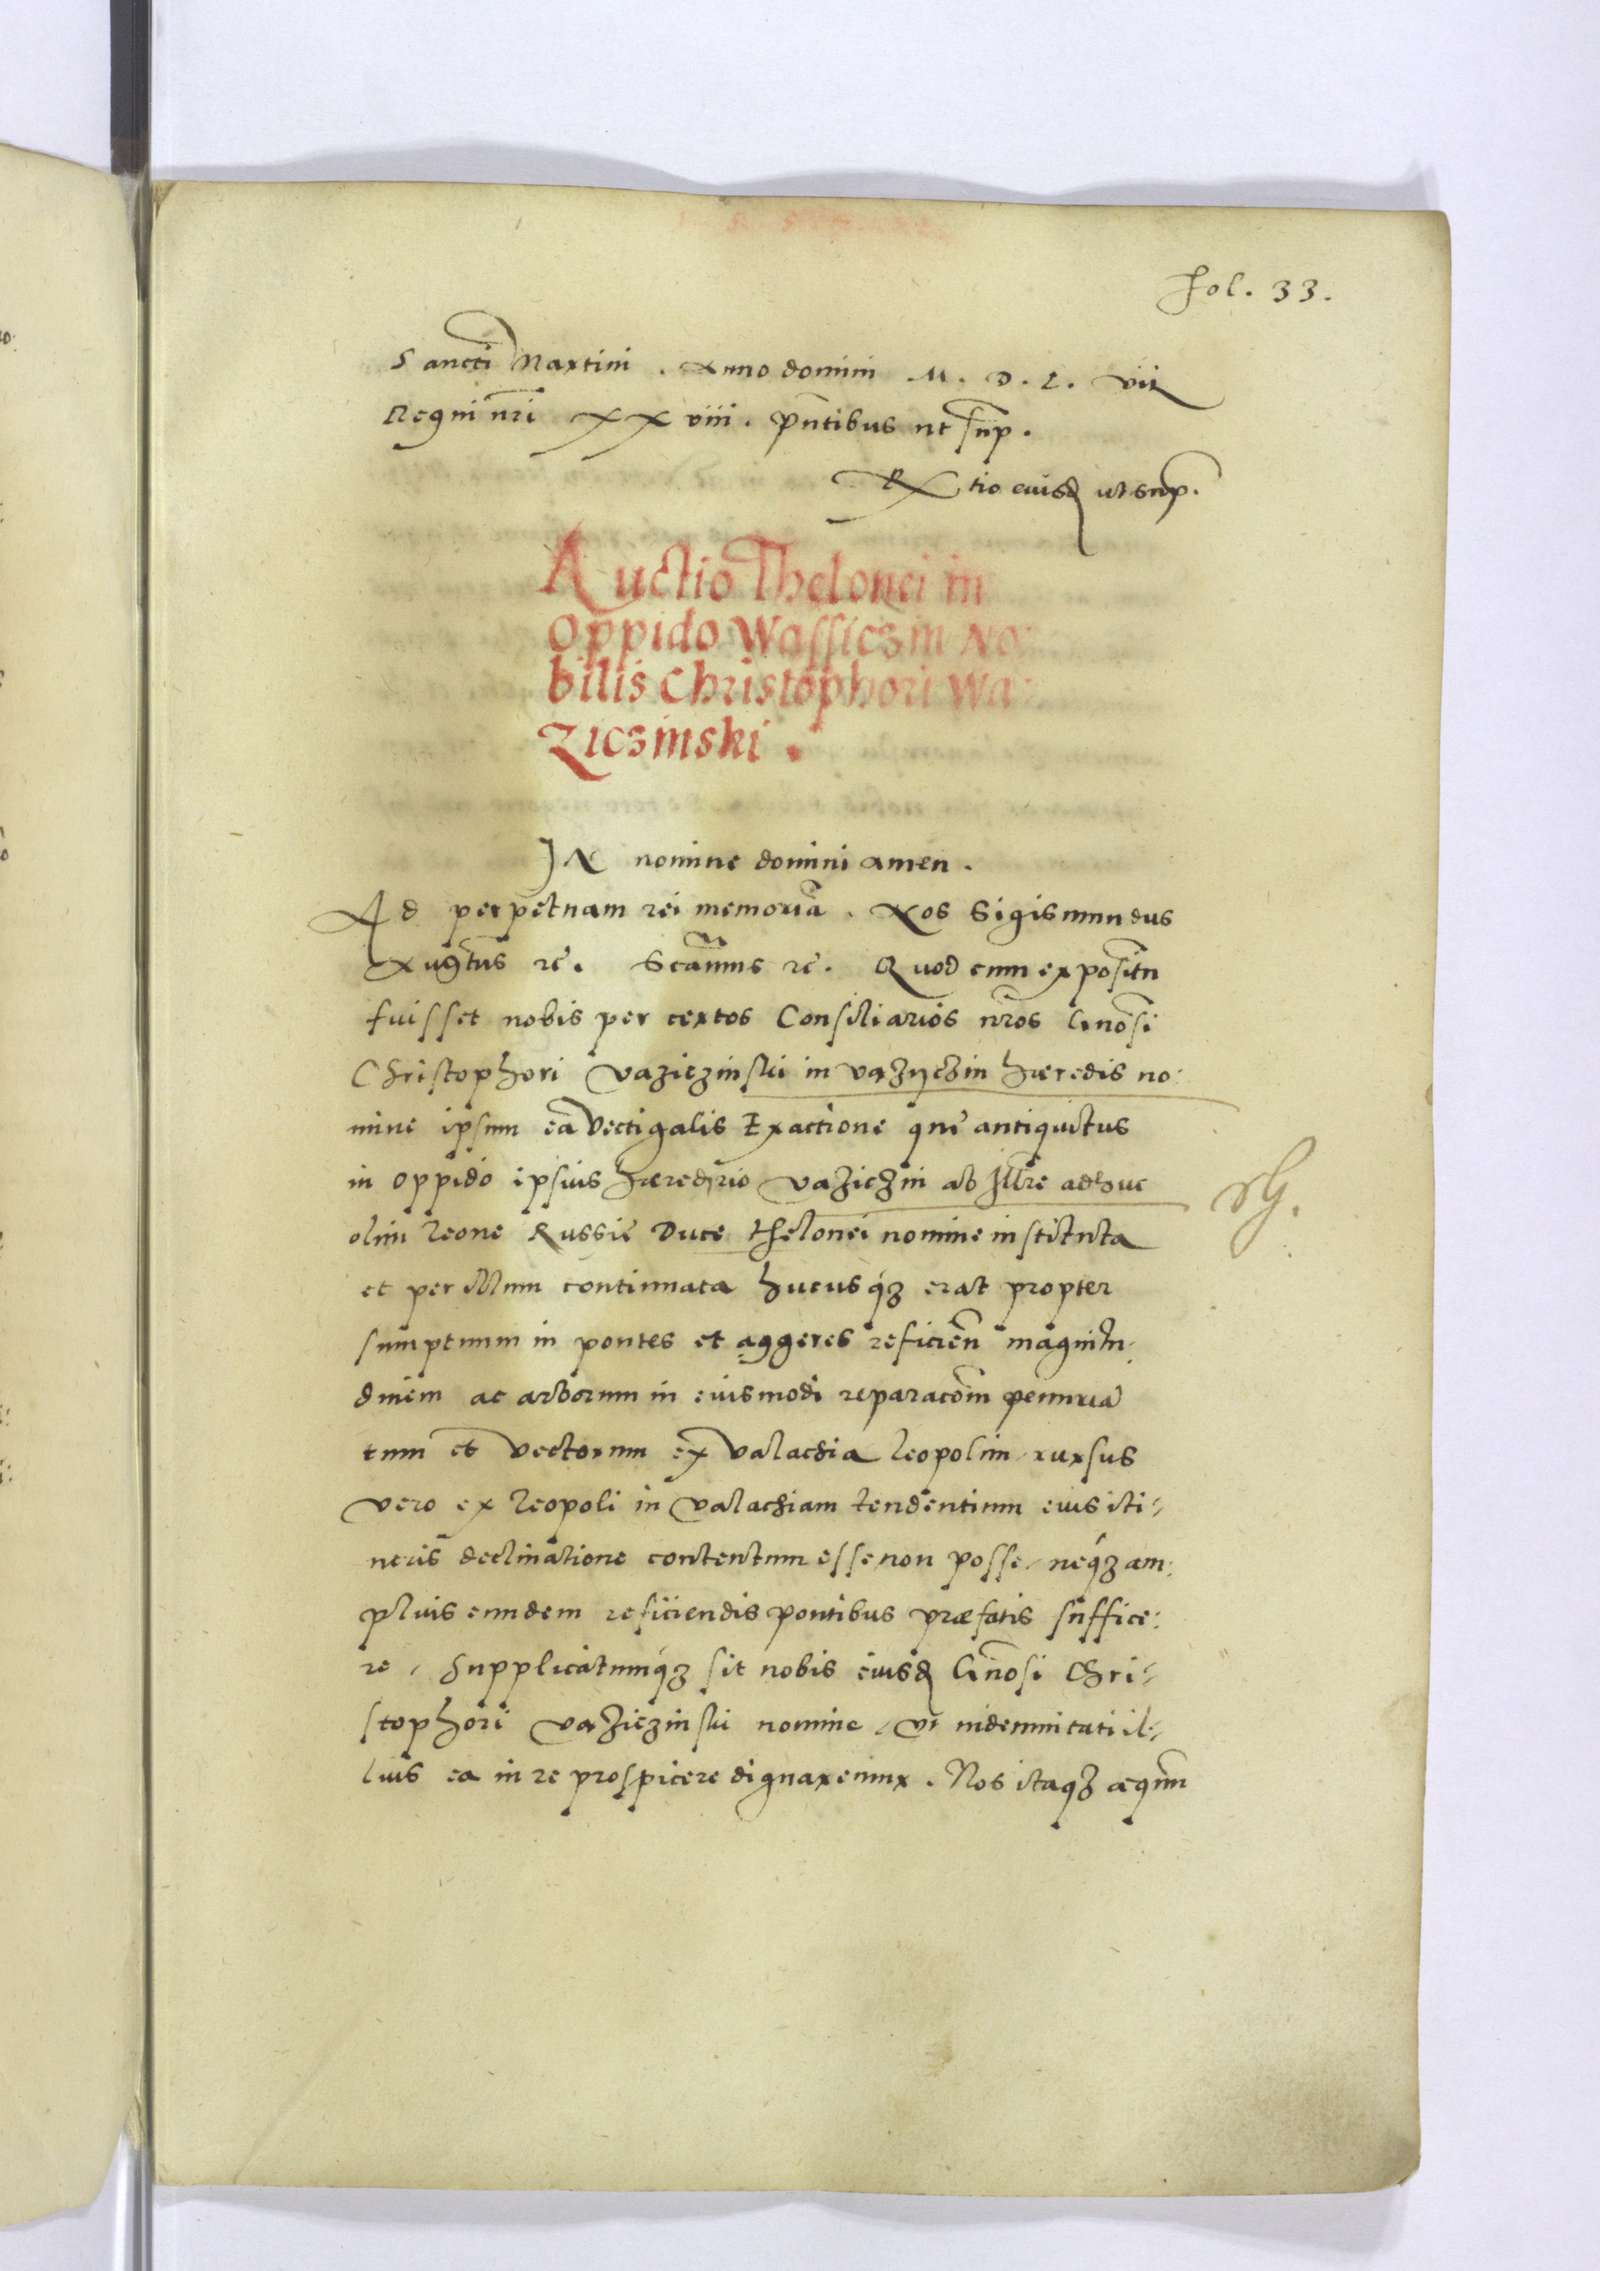 fol. 33.
Sancti Martini . Anno domini M. D. L. vii
Regni nri XXviii . pntibus ut sup.
Rtio eiusd ut sup.
Auctio Thelonei in
Oppido Wassiczin No:
bilis Christophori Wa:
ziczinski .
IN nomine domini amen .
Ad perpetuam rei memoria . Nos Sigismundus
Augtus rc . Scamus rc . Quod cum expositu
fuisset nobis per certos Consiliarios nros Gnosi
Christophori vaziczinski in vazyczin hæredis no:
mine ipsum ea vectigalis Exactione que antiquitus
in oppido ipsius hæredrio vaziczin ab Illre adhuc
olim leone Russie Duce thelonei nomine instituta
et per illum continuata hucusqz erat propter
sumptuum in pontes et aggeres reficien magnitu:
dinem ac arborum in eiusmodi reparacom penuria
tum et vectorum ex valachia leopolim rursus
vero ex leopoli in valachiam tendentium eius iti:
neris declinatione contentum esse non posse, neqz am:
plius eundem reficiendis pontibus præfatis suffice:
re, Supplicatumqz sit nobis eiusd Gnosi Chri:
stophori vaziczinski nomine, vt indemnitati il:
lius ea in re prospicere dignaremur . Nos itaqz æquum